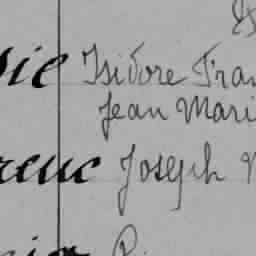 sie Isidore Fran
Jean Mari
renc Joseph